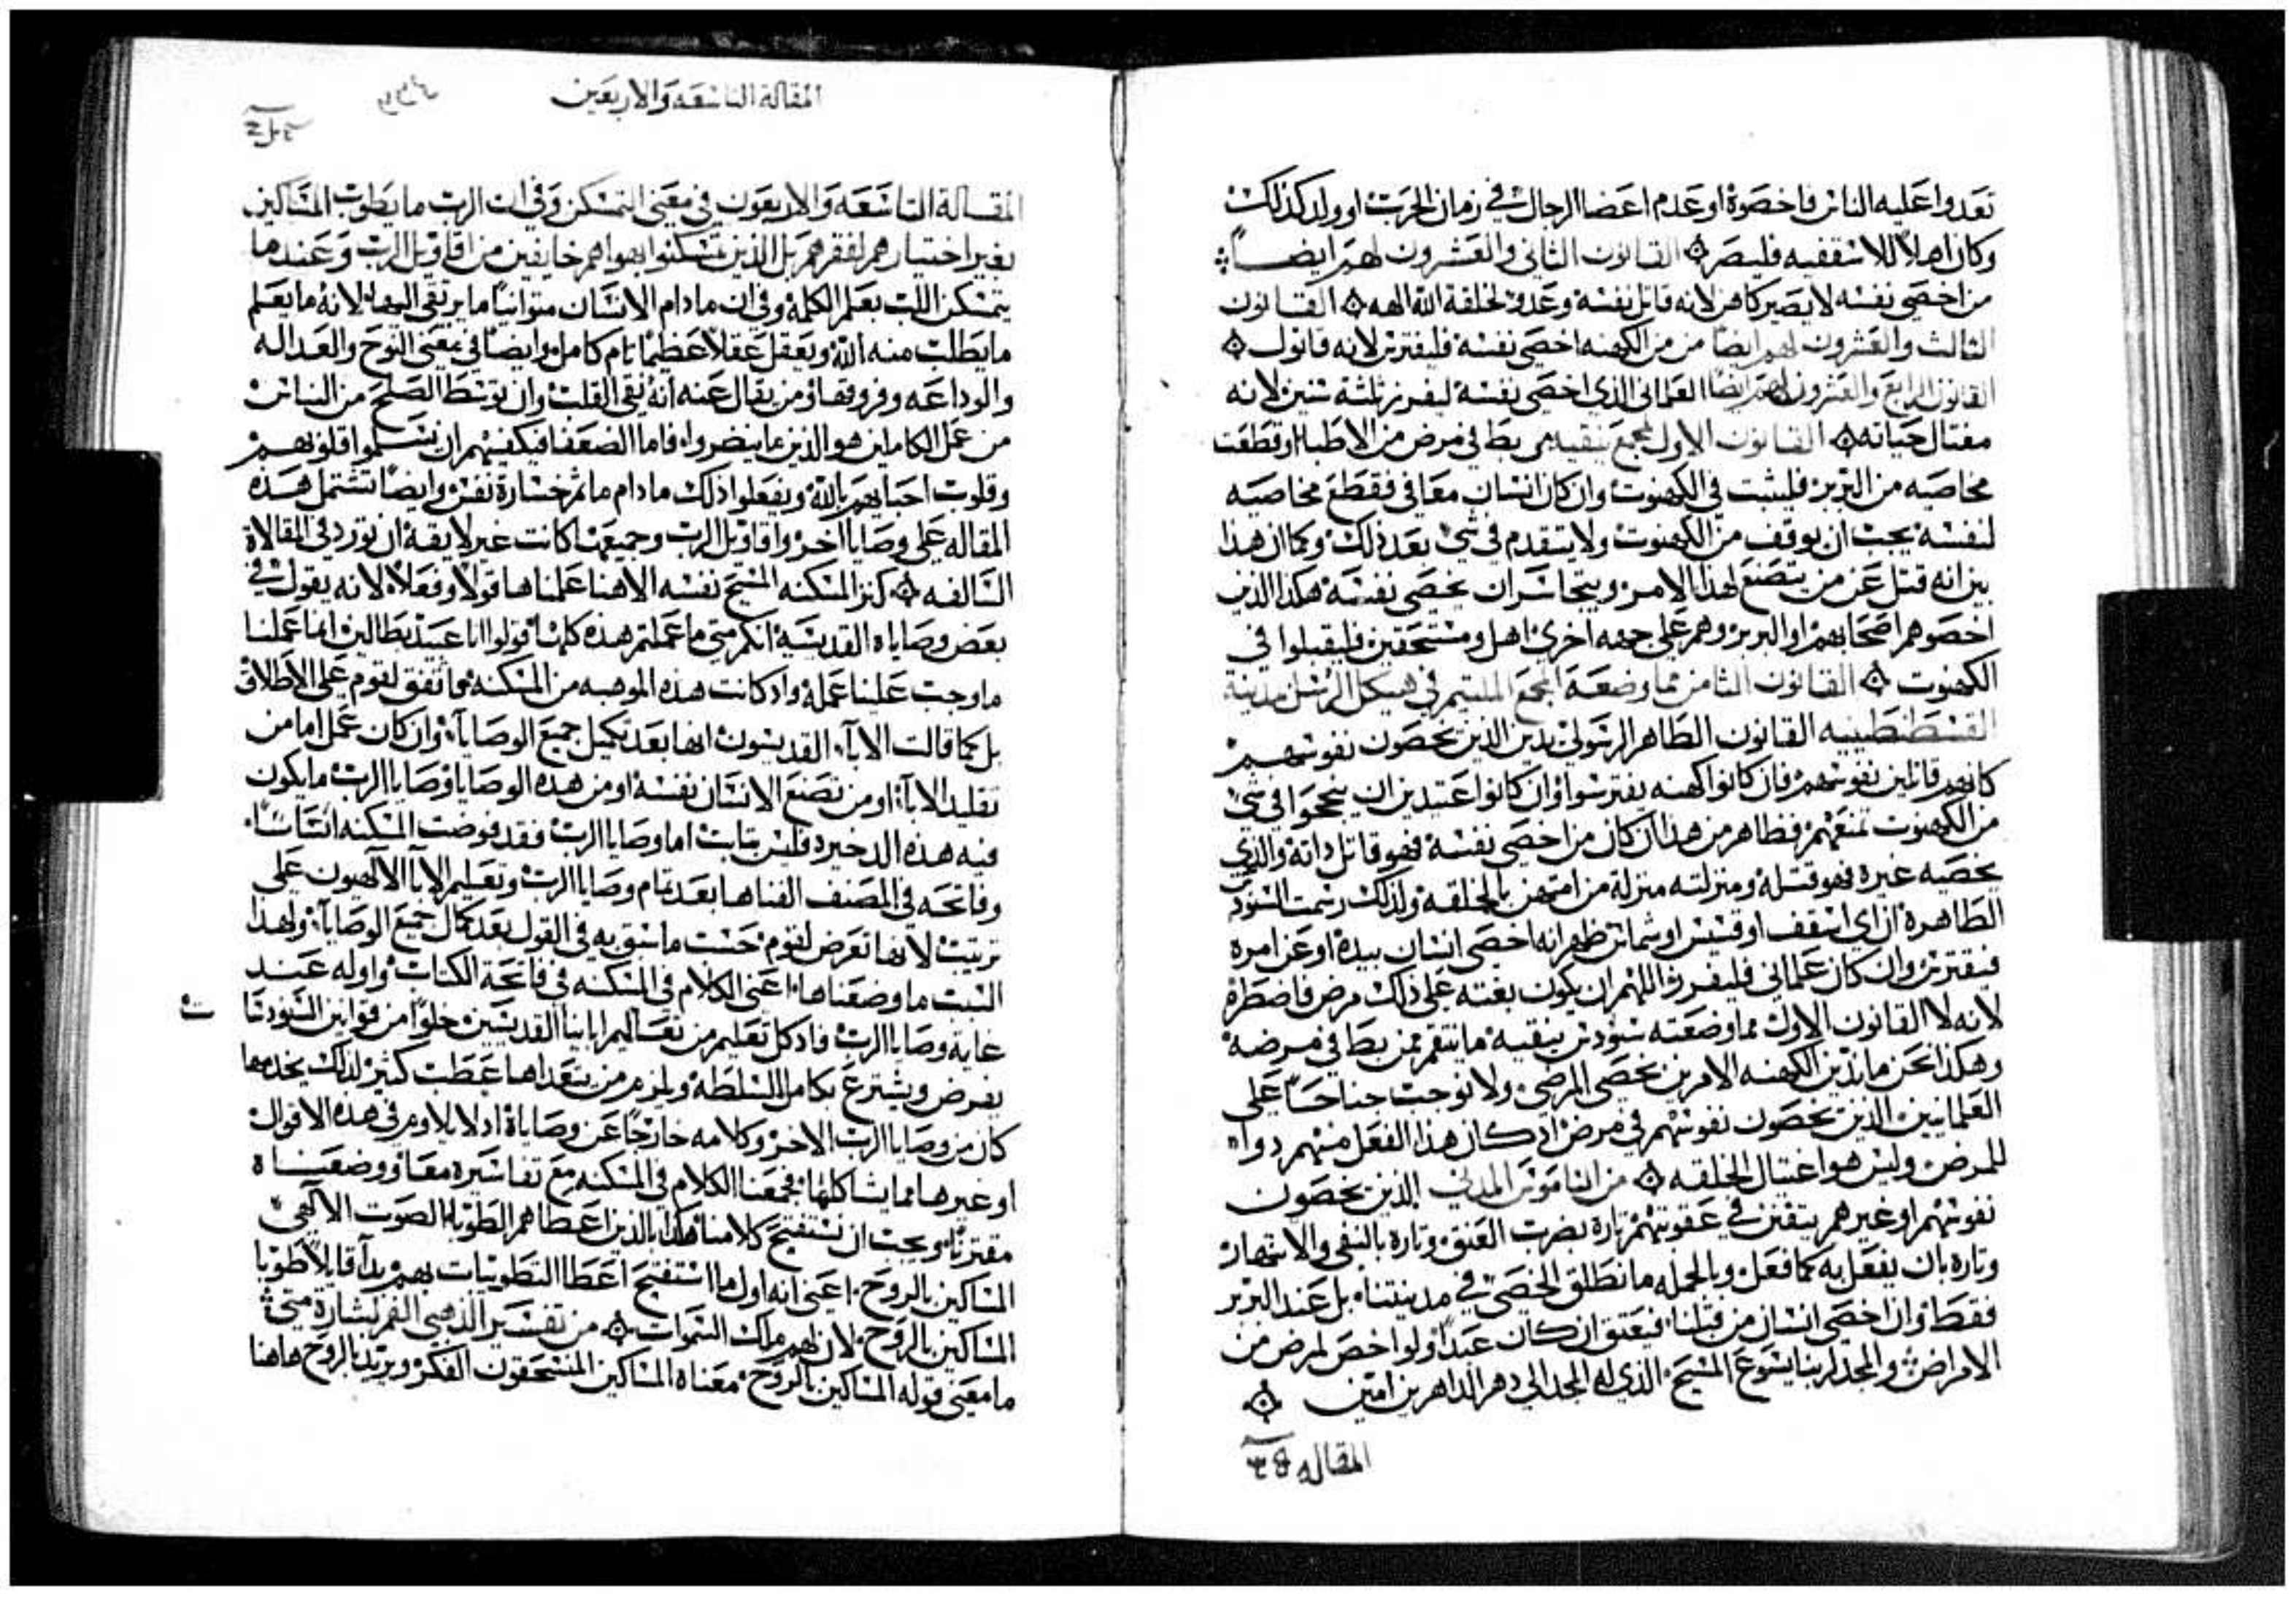 تعدوا عليه الناس فاخصوه او عدم اعضا الرجال في زمان الحرب او ولد كذلك
وكان اهلاً للاسقفيه فليصر القانون الثاني والعشرون لهم ايضاً
من اخصى نفسه لا يصير كاهن لانه قاتل نفسه وعدو لخلقة الله الهه القانون
الثالث والعشرون لهم ايضاً من من الكهنه اخصى نفسه فليفترس لانه قاتول
القانون الرابع والعشرون لهم ايضاً العماني الذي اخصى نفسه ليفرز ثلثة سنين لانه
مغتال حياته القانون الاول لمجمع بنقيه من بط في مرض من الاطبا او قطعت
مخاصيه من البربر فليثبت في الكهنوت وان كان انسان معافى فقطع مخاصيه
لنفسه يجب ان يوقف من الكهنوت ولا يتقدم في شي بعد ذلك وكما ان هذا
بين انه قيل عن من يتصنع لهذا الامر ويتجاسر ان يخصى نفسه هكذا الذين
اخصوهم اصحابهم او البربر وهم على جهه اخرى اهل ومستحقين فليقبلوا في
الكهنوت القانون الثامن مما وضعه المجمع الملتئم في هيكل الرسل مدينة
القسطنطينيه القانون الطاهر الرسولي يدين الذين يخصون نفوسهم
كانهم قاتلين نفوسهم فان كانوا كهنه يفترسوا وان كانوا عتيدين ان ينجحوا في شي
من الكهنوت تمنعهم فظاهر من هذا ان كان من اخصى نفسه فهو قاتل ذاته والذي
يخصيه غيره فهو قتله ومنزلته منزلة من امتهن بالخلقه ولذلك رسمت السنودس
الطاهرة ان اي اسقف او قسيس او شماس ظهر انه اخصى انسان بيده او عن امره
فيفترس وان كان عماني فليفرز اللهم ان يكون بغته على ذلك مرض فاضطره
لانه لا القانون الاول مما وضعته سنودس بنقيه ما ينتقم ممن بط في مرضه
وهكذا نحن ما ندين الكهنه الامرين بخصى المرضى ولا نوجب جناحاً على
العلمانيين الذين يخصون نفوسهم في مرض اد كان هذا الفعل منهم دوا
للمرض وليس هو اغتيال الخلقه من الناموس المدني الذين يخصون
نفوسهم او غيرهم يتفنن في عقوبتهم تارة بضرب العنق وتاره بالنفي والاشهار
وتاره بان يفعل به كما فعل وبالجمله ما نطلق الخصي في مدينتنا بل عند البربر
فقط وان اخصى انسان من قبلنا فيعتق ان كان عبداً ولو اخص لمرض من
الامراض والمجد لربنا يسوع المسيح الذي له المجد الى دهر الداهرين امين
المقاله
المقالة التاسعه والاربعين
المقالة التاسعه والاربعون في معنى التمسكن وفي ان الرب ما يطوب المساكين
بغير اختيارهم لفقرهم بل الذين تمسكنوا بهواهم خايفين من اقاويل الرب وعندما
يتمسكن اللب بعلم الكلمه وفي ان ما دام الانسان متوانياً ما يرتقي اليها لانه ما يعلم
ما يطلب منه الله ويعقل عقلاً عظيماً تام كامل وايضاً في معنى النوح والعداله
والوداعه وفروقها ومن يقال عنه انه نقي القلب وان توسط الصلح من الناس
من عمل الكاملين هو الذين ما ينضروا فاما الضعفا فيكفيهم ان يسلموا قلوبهم
وقلوب احبابهم بالله ويفعلوا ذلك ما دام ما ثم خسارة نفس وايضاً تشتمل هذه
المقاله على وصايا اخر واقاويل الرب وجميعها كانت غير لايقه ان تورد في المقالاة
السالفه كنز المسكنه المسيح نفسه الاهنا علمناها قولاً وفعلاً لانه يقول في
بعض وصاياه القديسيه انكم متى ما عملتم هذه كلها قولوا انا عبيد بطالين انما عملنا
ما وجب علينا عمله واد كانت هذه الموهبه من المسكنه ما تتفق لقوم على الاطلاق
بل كما قالت الابآ القديسون انها بعد تكميل جميع الوصايا وان كان عمل اما من
تقليد الابآ او من تصنع الانسان نفسه او من هذه الوصايا وصايا الرب ما يكون
فيه هذه الدخيره فليس بثابت اما وصايا الرب فقد فوضت المسكنه اساساً
وفاتحه في المصنف الفناها بعد تمام وصايا الرب وتعليم الابآ الالهيون على
ترتيب لانها تعرض لقوم حسب ما سبق به في القول بعد كمال جميع الوصايا ولهذا
السبب ما وضعناها اعني الكلام في المسكنه في فاتحة الكتاب واوله عند
غاية وصايا الرب واد كل تعليم من تعاليم ابايناا القديسين خلواً من قوانين السنودسا
يفرض ويشترع بكامل السلطه ويلزم من يتعداها عطب كثير لذلك يخدمها
كان من وصايا الرب الاخر وكلامه خارجاً عن وصاياه اد لا يلاوم في هذه الاقوال
او غيرها مما يشاكلها فجمعنا الكلام في المسكنه مع تفاسيره معاً ووضعناه
مقترناً ويجب ان نستفتح كلامنا هكذا بالذين اعطاهم الطوبا الصوت الالهي
المساكين بالروح اعني انه اول ما استفتح اعطا التطويبات بهم بدا قايلاً طوبا
المساكين بالروح لان لهم ملك السموات من تفسير الذهبي الفم لبشارة متى
ما معنى قوله المساكين بالروح معناه المساكين المنسحقون الفكر ويريد بالروح هاهنا